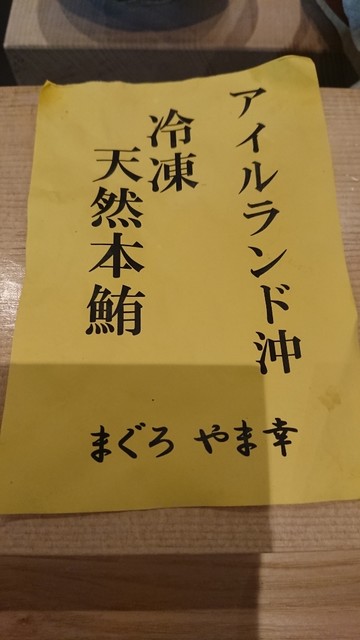 アイルランド沖
冷凍
天然本鮪
まぐろ やま幸